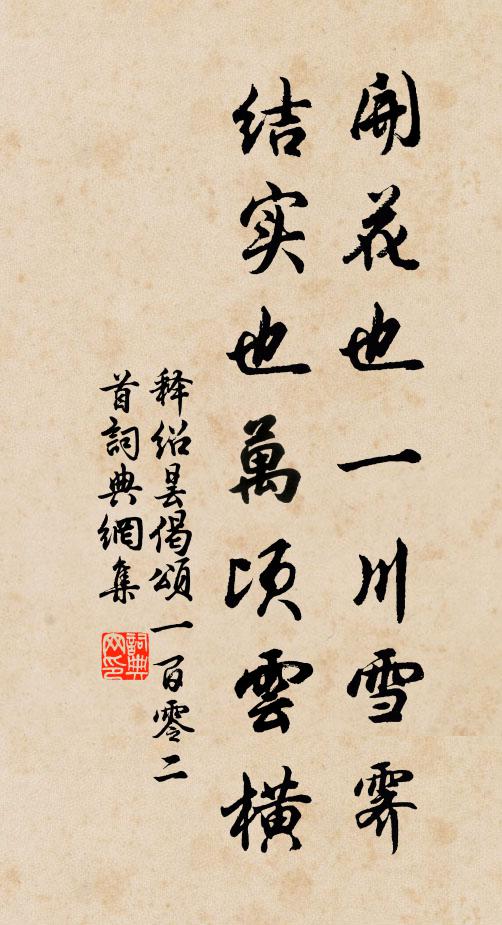 開花也一川雪霽
结实也萬頃雲橫
释绍曇偈頌一百零二
首詞典網集
詞典網印